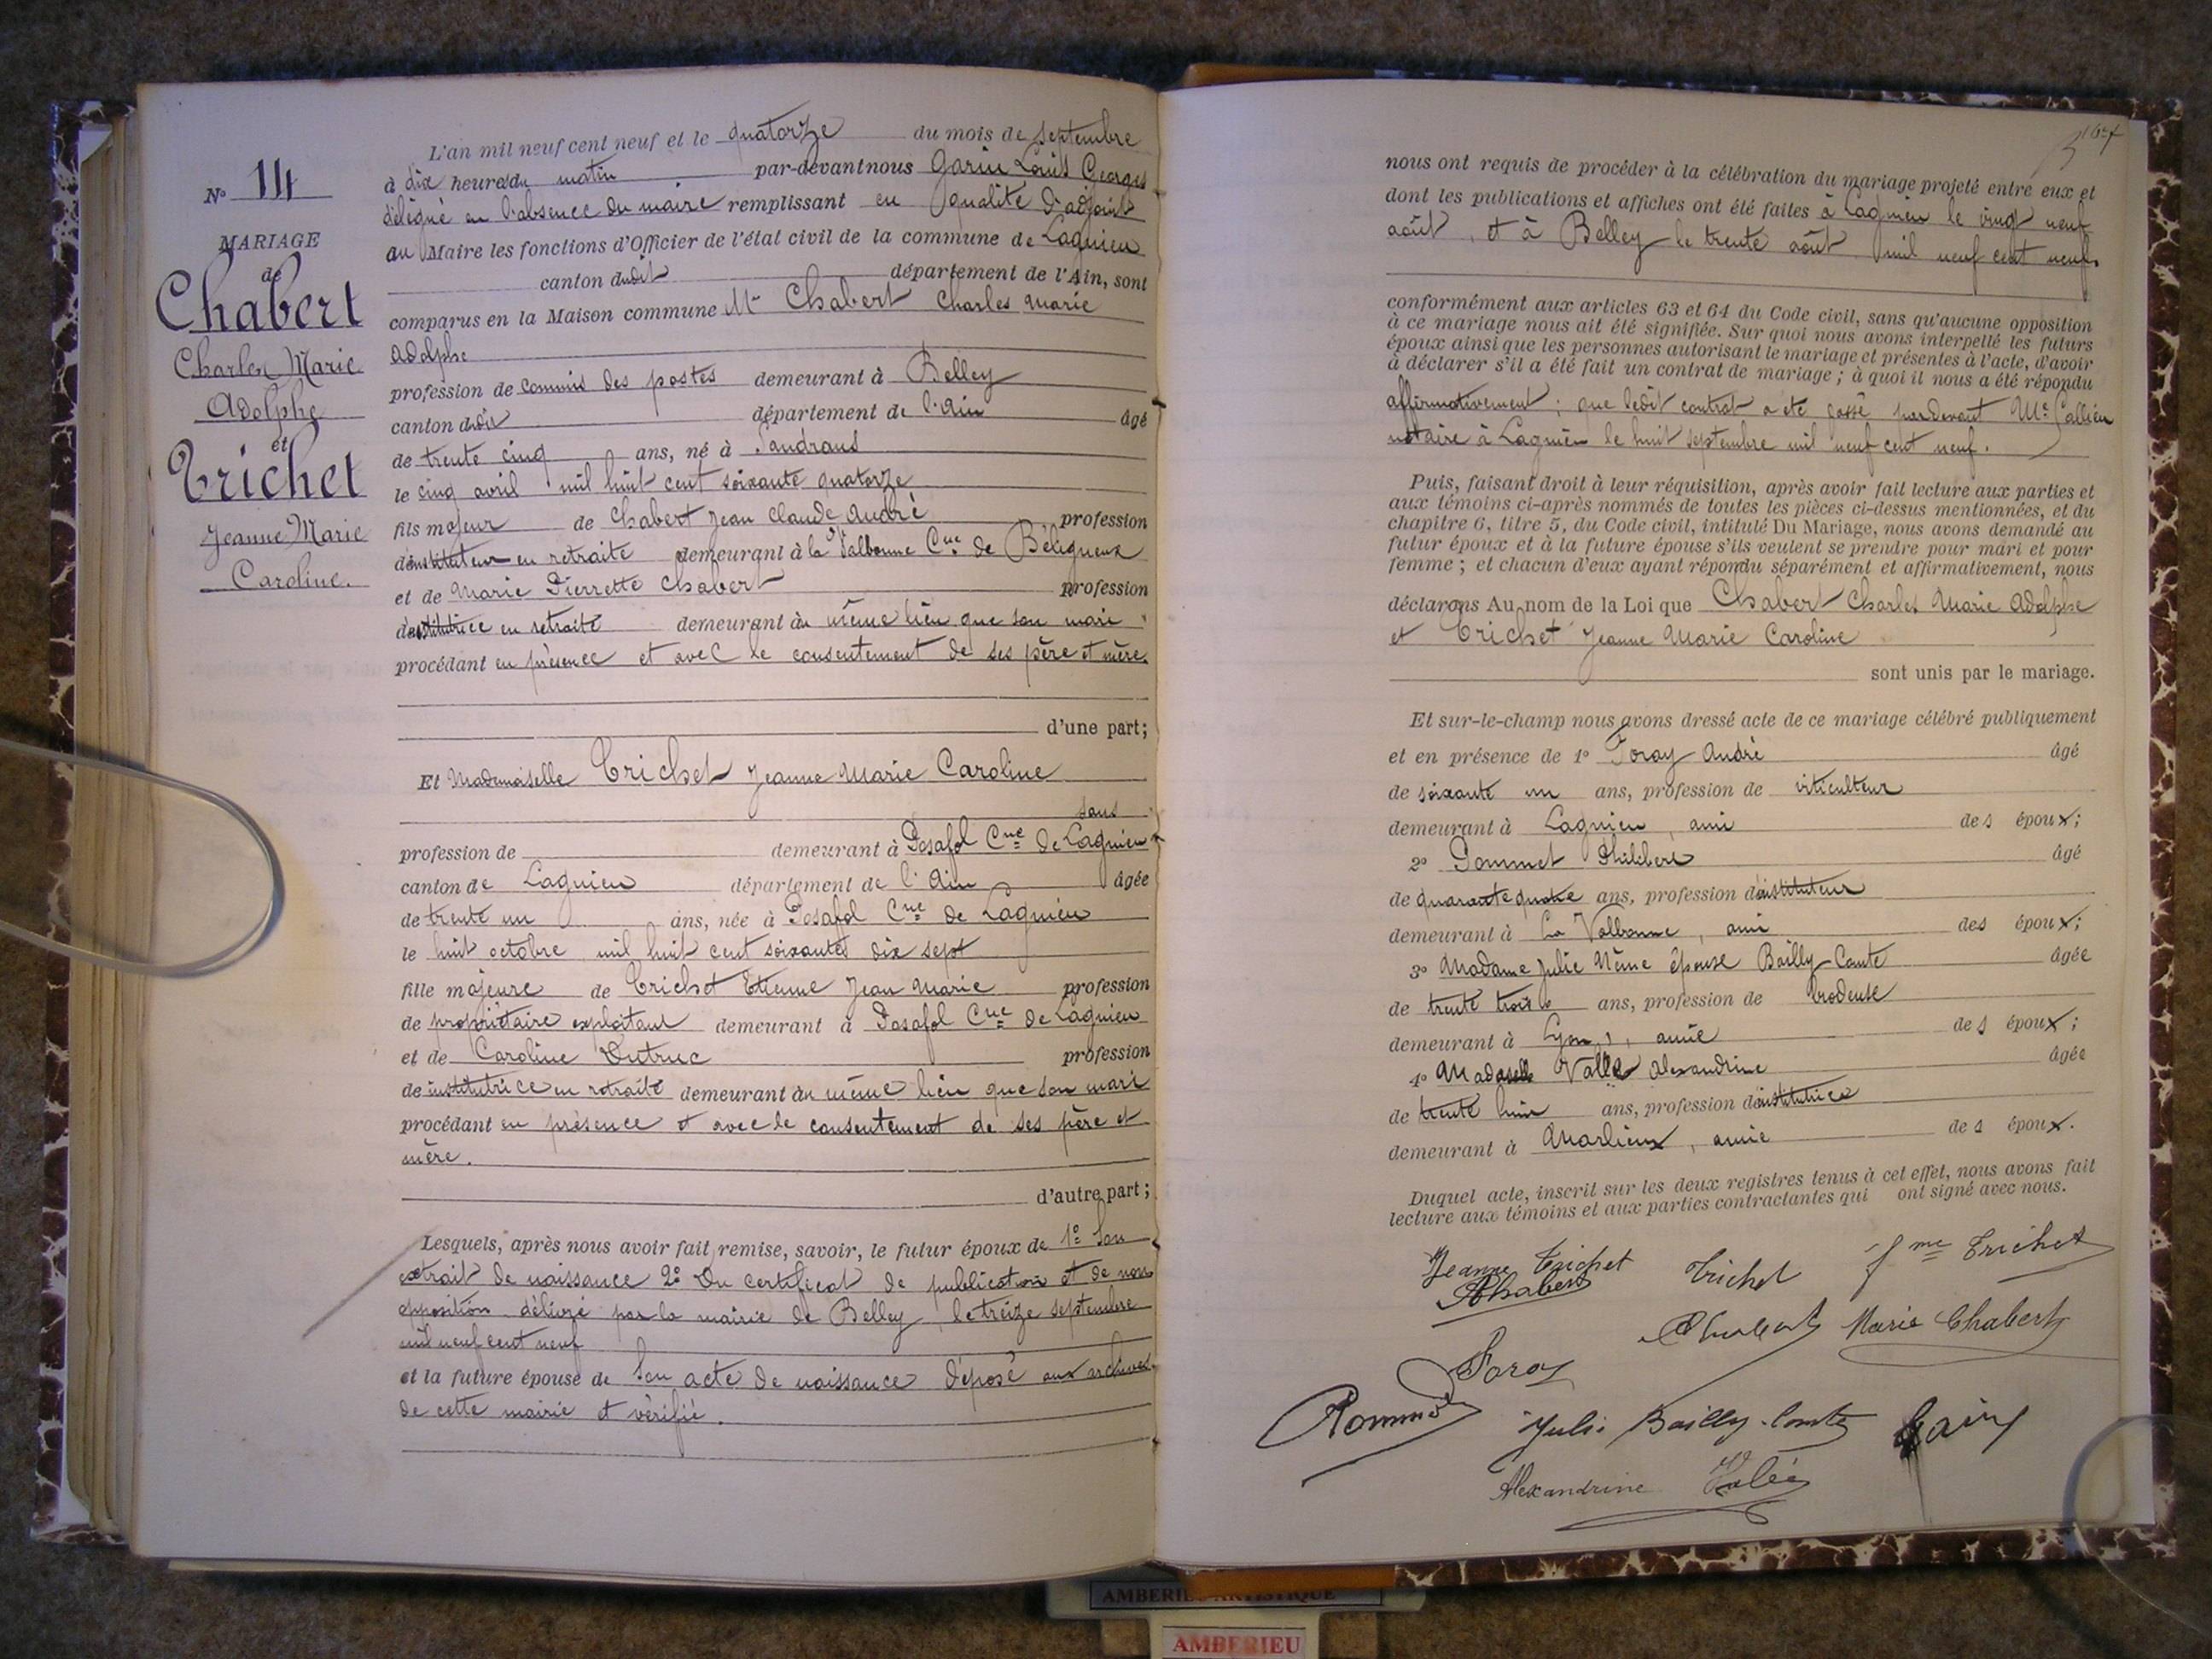 N° 14
MARIAGE
de
Chabert
Charles Marie
Adolphe
et
Trichet
Jeanne Marie
Caroline.
L'an mil neuf cent neuf et le quatorze du mois de septembre
à dix heures du matin par-devant nous Garin Louis Georges
délégué en l'absence du maire remplissant en qualité d'adjoint
au Maire les fonctions d'Officier de l'état civil de la commune de Lagnieu
canton dudit département de l'Ain, sont
comparus en la Maison commune Mr Chabert Charles Marie
Adolphe
profession de commis des postes demeurant à Belley
canton dudit département de l'Ain âgé
de trente cinq ans, né à Sandrans
le cinq avril mil huit cent soixante quatorze
fils majeur de Chabert Jean Claude André profession
d'instituteur en retraite demeurant à la Valbonne Cne de Béligneux
et de Marie Pierrette Chabert profession
d'institutrice en retraite demeurant au même lieu que son mari
procédant en présence et avec le consentement de ses père et mère.
d'une part;
Et Mademoiselle Trichet Jeanne Marie Caroline
sans
profession de demeurant à Posafol Cne de Lagnieu
canton de Lagnieu département de l'Ain âgée
de trente un ans, née à Posafol Cne de Lagnieu
le huit octobre mil huit cent soixante dix sept
fille majeure de Trichet Etienne Jean Marie profession
de propriétaire exploitant demeurant à Posafol Cne de Lagnieu
et de Caroline Dutruc profession
de institutrice en retraite demeurant au même lieu que son mari
procédant en présence et avec le consentement de ses père et
mère.
d'autre part;
Lesquels, après nous avoir fait remise, savoir, le futur époux de 1° Son
extrait de naissance 2° Du certificat de publication et de non
opposition délivré par la mairie de Belley, le treize septembre
mil neuf cent neuf
et la future épouse de Son acte de naissance déposé aux archives
de cette mairie et vérifié.
nous ont requis de procéder à la célébration du mariage projeté entre eux et
dont les publications et affiches ont été faites à Lagnieu le vingt neuf
août, et à Belley le trente août mil neuf cent neuf.
conformément aux articles 63 et 64 du Code civil, sans qu'aucune opposition
à ce mariage nous ait été signifiée. Sur quoi nous avons interpellé les futurs
époux ainsi que les personnes autorisant le mariage et présentes à l'acte, d'avoir
à déclarer s'il a été fait un contrat de mariage; à quoi il nous a été répondu
affirmativement; que ledit contrat a été passé pardevant Me Gallien
notaire à Lagnieu le huit septembre mil neuf cent neuf.
Puis, faisant droit à leur réquisition, après avoir fait lecture aux parties et
aux témoins ci-après nommés de toutes les pièces ci-dessus mentionnées, et du
chapitre 6, titre 5, du Code civil, intitulé Du Mariage, nous avons demandé au
futur époux et à la future épouse s'ils veulent se prendre pour mari et pour
femme; et chacun d'eux ayant répondu séparément et affirmativement, nous
déclarons Au nom de la Loi que Chabert Charles Marie Adolphe
et Trichet Jeanne Marie Caroline
sont unis par le mariage.
Et sur-le-champ nous avons dressé acte de ce mariage célébré publiquement
et en présence de 1° Foray André âgé
de soixante un ans, profession de viticulteur
demeurant à Lagnieu, ami des époux;
2° Pommet Philibert âgé
de quarante quatre ans, profession d'instituteur
demeurant à La Valbonne, ami des époux;
3° Madame Julie Même épouse Bailly-Comte âgée
de trente trois ans, profession de brodeuse
demeurant à Lyon, amie des époux;
4° Madaselle Vallée Alexandrine âgée
de trente huit ans, profession d'institutrice
demeurant à Marlieux, amie des époux.
Duquel acte, inscrit sur les deux registres tenus à cet effet, nous avons fait
lecture aux témoins et aux parties contractantes qui ont signé avec nous.
Jeanne Trichet Trichet fme Trichet
Chabert
Chabert Marie Chabert
Foray
Pommet Julie Bailly-Comte Garin
Alexandrine Valée
AMBERIEU ARTISTIQUE
AMBERIEU